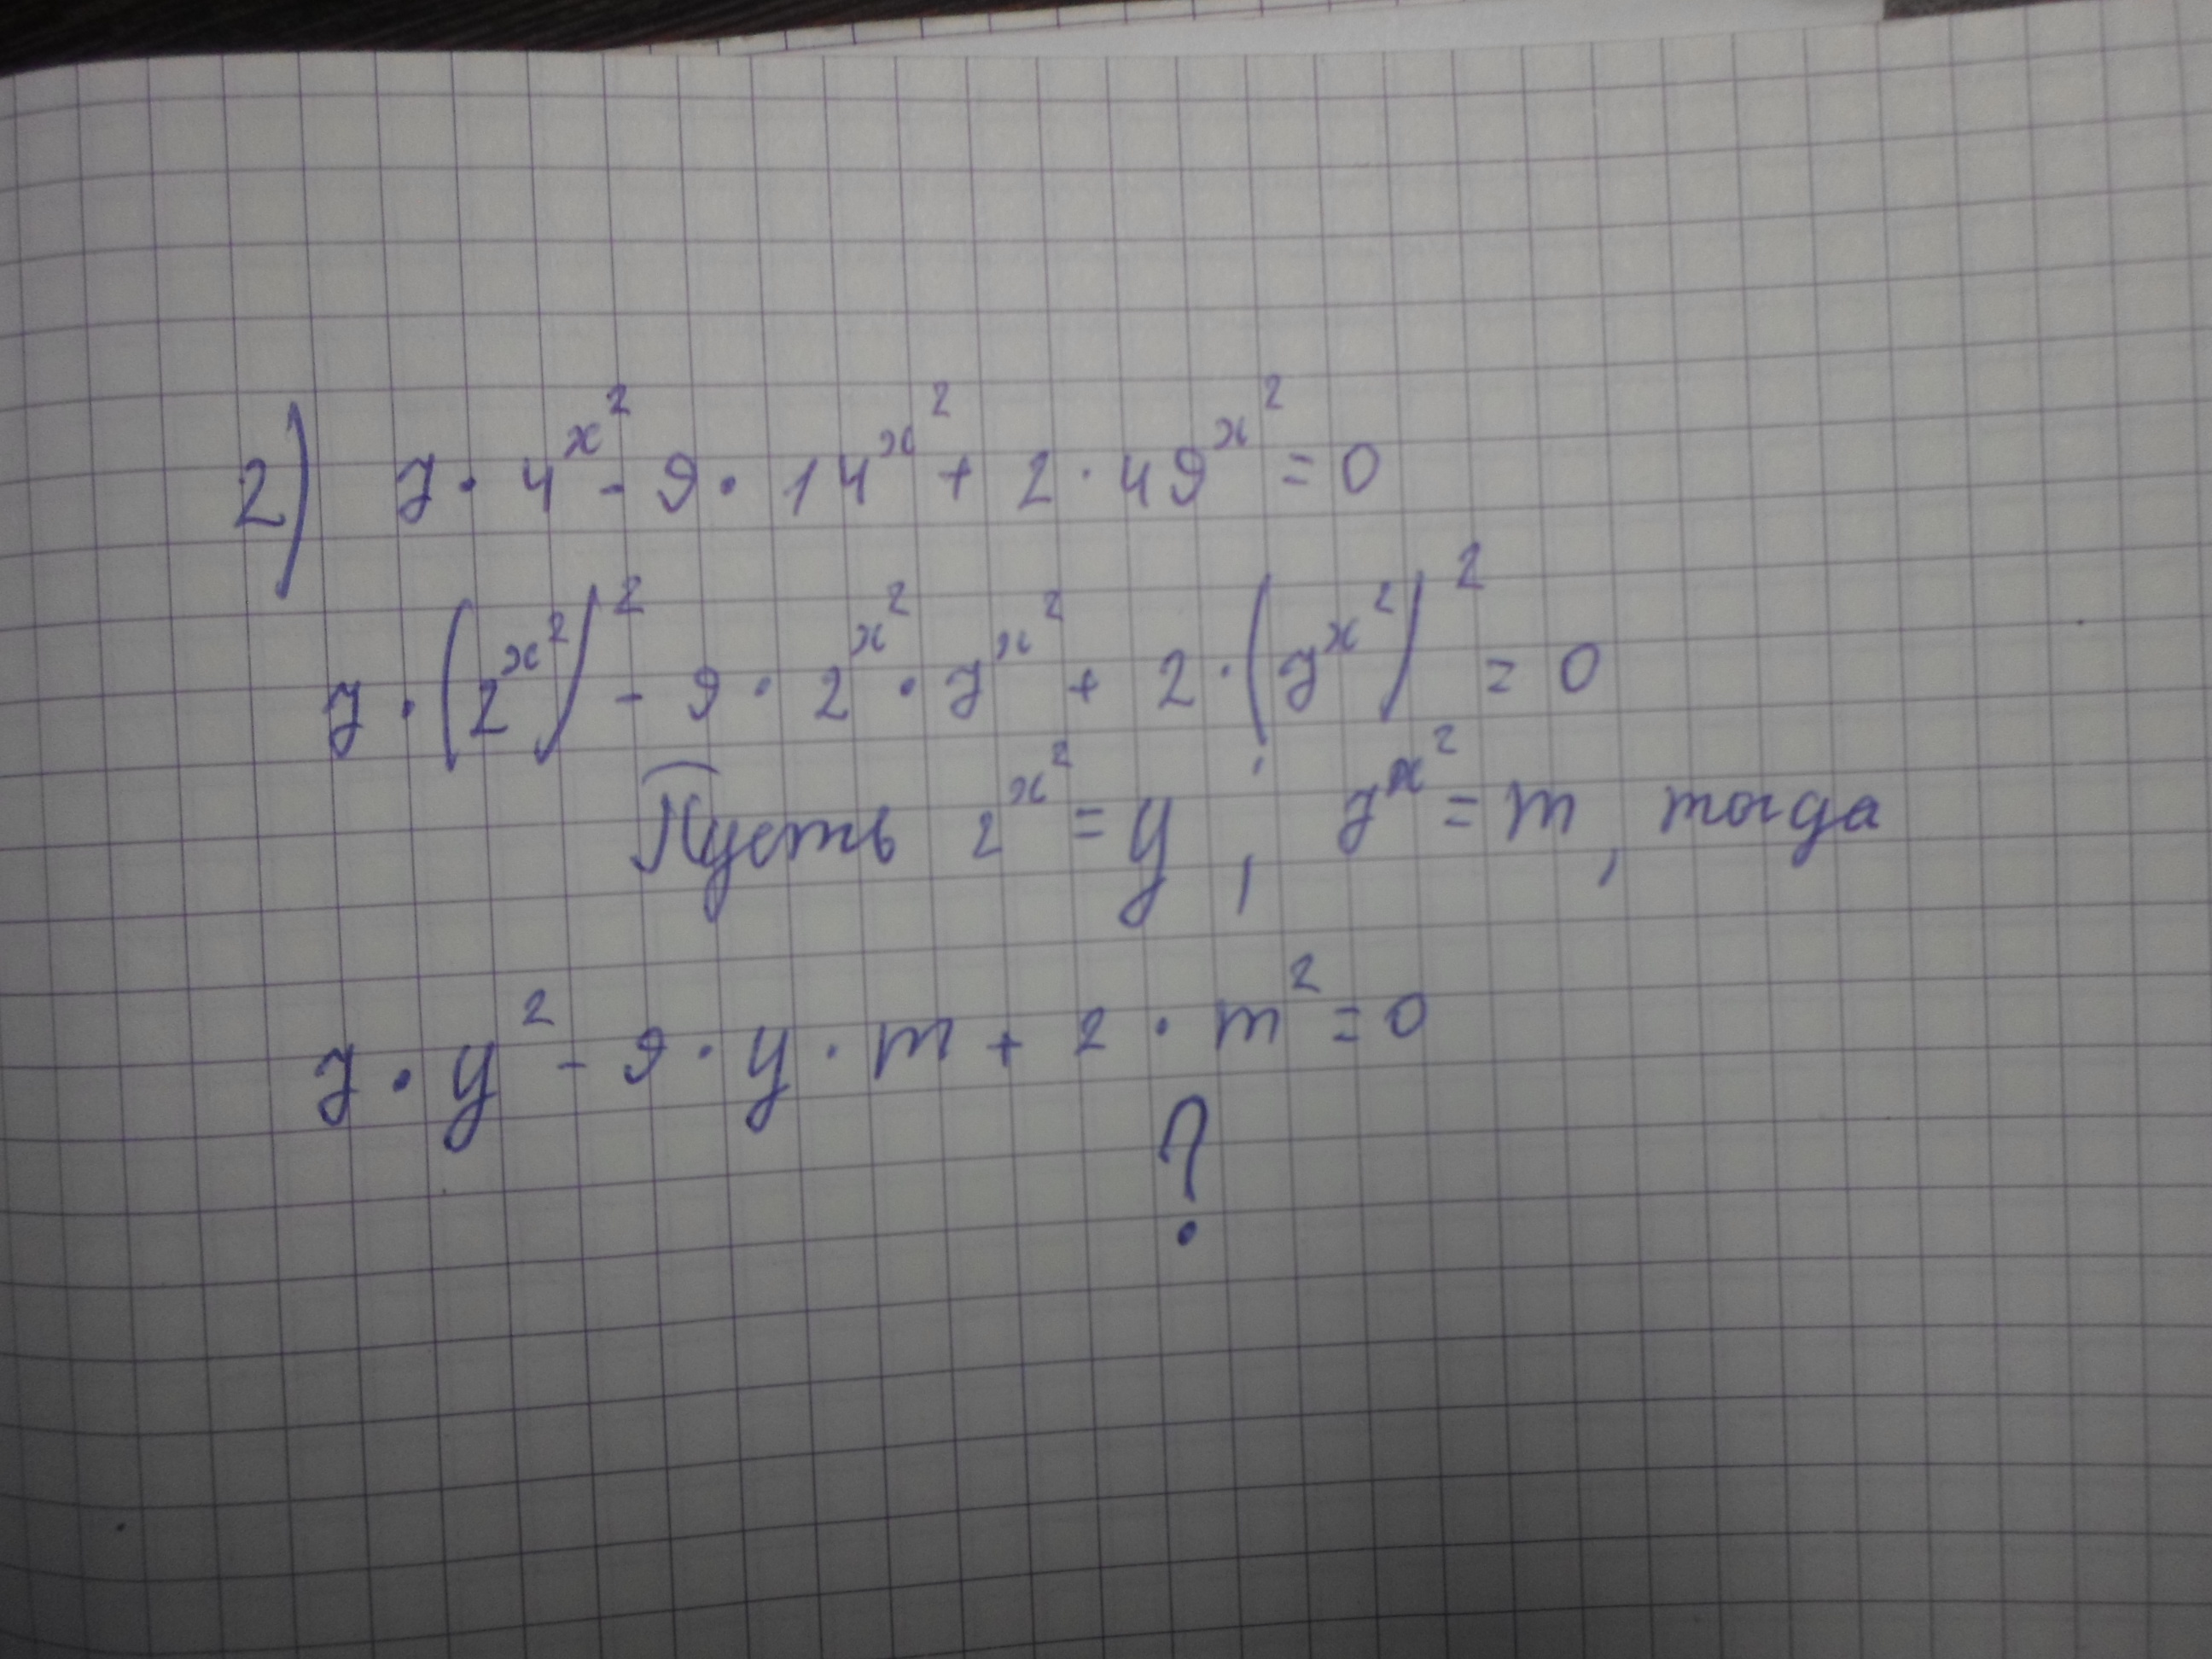 2) 7 · 4^{x^2} - 9 · 14^{x^2} + 2 · 49^{x^2} = 0
7 · (2^{x^2})^2 - 9 · 2^{x^2} · 7^{x^2} + 2 · (7^{x^2})^2 = 0
Пусть 2^{x^2} = y ; 7^{x^2} = m, тогда
7 · y^2 - 9 · y · m + 2 · m^2 = 0
?